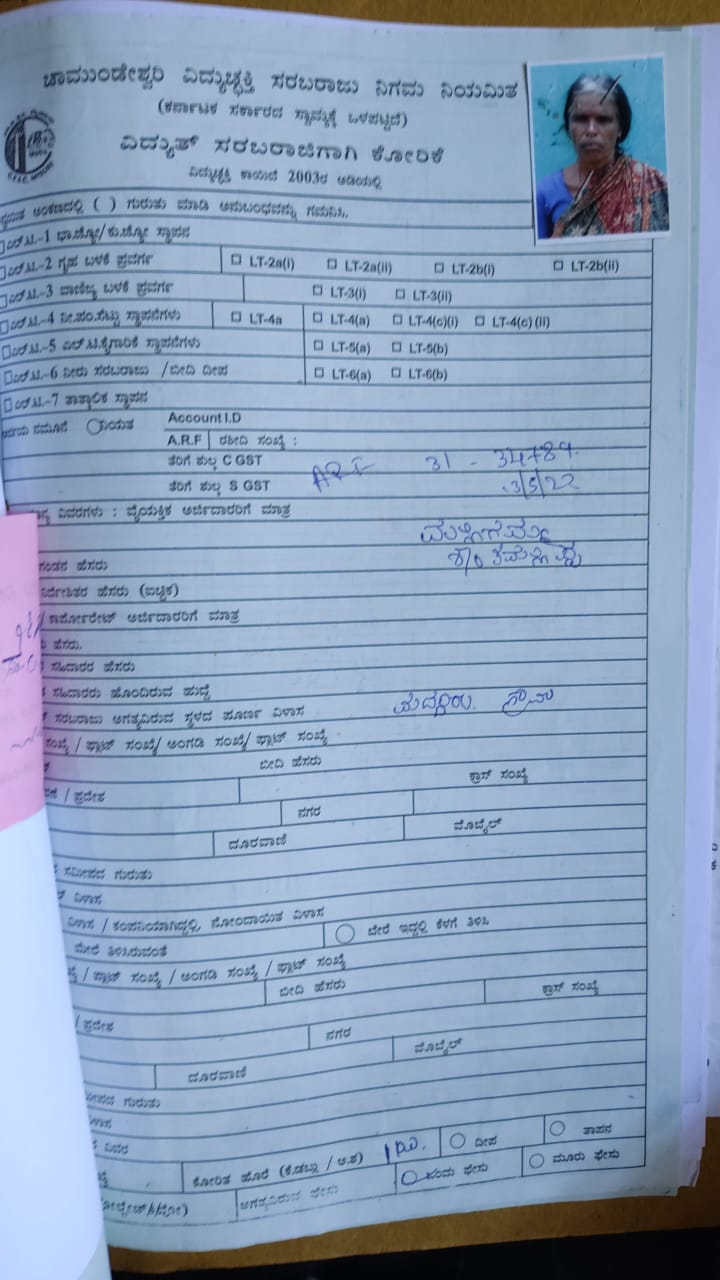 ಚಾಮುಂಡೇಶ್ವರಿ ವಿದ್ಯುಚ್ಛಕ್ತಿ ಸರಬರಾಜು ನಿಗಮ ನಿಯಮಿತ
(ಕರ್ನಾಟಕ ಸರ್ಕಾರದ ಸ್ವಾಮ್ಯಕ್ಕೆ ಒಳಪಟ್ಟಿದೆ)
ವಿದ್ಯುತ್ ಸರಬರಾಜಿಗಾಗಿ ಕೋರಿಕೆ
ವಿದ್ಯುಚ್ಛಕ್ತಿ ಕಾಯಿದೆ 2003ರ ಅಡಿಯಲ್ಲಿ
ಅಂಕಣದಲ್ಲಿ ( ) ಗುರುತು ಮಾಡಿ ಅನುಬಂಧವನ್ನು ಗಮನಿಸಿ.
ಎಲ್.ಟಿ.-1 ಭಾ.ಜ್ಯೋ/ಕು.ಜ್ಯೋ ಸ್ಥಾಪನ
ಎಲ್.ಟಿ.-2 ಗೃಹ ಬಳಕೆ ಪ್ರವರ್ಗ LT-2a(i) LT-2a(ii) LT-2b(i) LT-2b(ii)
ಎಲ್.ಟಿ.-3 ವಾಣಿಜ್ಯ ಬಳಕೆ ಪ್ರವರ್ಗ LT-3(i) LT-3(ii)
ಎಲ್.ಟಿ.-4 ನೀ.ಪಂ.ಸೆಟ್ಟು ಸ್ಥಾಪನೆಗಳು LT-4a LT-4(a) LT-4(c)(i) LT-4(c)(ii)
ಎಲ್.ಟಿ.-5 ಎಲ್.ಟಿ.ಕೈಗಾರಿಕೆ ಸ್ಥಾಪನೆಗಳು LT-5(a) LT-5(b)
ಎಲ್.ಟಿ.-6 ನೀರು ಸರಬರಾಜು /ಬೀದಿ ದೀಪ LT-6(a) LT-6(b)
ಎಲ್.ಟಿ.-7 ತಾತ್ಕಾಲಿಕ ಸ್ಥಾಪನ
ನಮೂನೆ ನಿಯತ Account I.D
A.R.F ರಶೀದಿ ಸಂಖ್ಯೆ :
ತೆರಿಗೆ ಶುಲ್ಕ C GST ARF 31 - 34789
ತೆರಿಗೆ ಶುಲ್ಕ S GST 3/5/22
ವಿವರಗಳು : ವೈಯಕ್ತಿಕ ಅರ್ಜಿದಾರರಿಗೆ ಮಾತ್ರ
ಗಂಡನ ಹೆಸರು
ನಿರ್ದೇಶಿತರ ಹೆಸರು (ಐಚ್ಛಿಕ)
ಕಾರ್ಪೋರೇಟ್ ಅರ್ಜಿದಾರರಿಗೆ ಮಾತ್ರ
ಹೆಸರು.
ಸಹಿದಾರರ ಹೆಸರು
ಸಹಿದಾರರು ಹೊಂದಿರುವ ಹುದ್ದೆ
ಸರಬರಾಜು ಅಗತ್ಯವಿರುವ ಸ್ಥಳದ ಪೂರ್ಣ ವಿಳಾಸ ಗ್ರಾಮ
ಸಂಖ್ಯೆ / ಫ್ಲಾಟ್ ಸಂಖ್ಯೆ/ ಅಂಗಡಿ ಸಂಖ್ಯೆ/ ಪ್ಲಾಟ್ ಸಂಖ್ಯೆ
ಬೀದಿ ಹೆಸರು
/ ಪ್ರದೇಶ ಕ್ರಾಸ್ ಸಂಖ್ಯೆ
ನಗರ
ದೂರವಾಣಿ ಮೊಬೈಲ್
ಸಮೀಪದ ಗುರುತು
ವಿಳಾಸ
ವಿಳಾಸ / ಕಂಪನಿಯಾಗಿದ್ದಲ್ಲಿ, ನೋಂದಾಯಿತ ವಿಳಾಸ
ಮೇಲೆ ತಿಳಿಸಿರುವಂತೆ ಬೇರೆ ಇದ್ದಲ್ಲಿ ಕೆಳಗೆ ತಿಳಿಸಿ
/ ಪ್ಲಾಟ್ ಸಂಖ್ಯೆ / ಅಂಗಡಿ ಸಂಖ್ಯೆ / ಫ್ಲಾಟ್ ಸಂಖ್ಯೆ
ಬೀದಿ ಹೆಸರು ಕ್ರಾಸ್ ಸಂಖ್ಯೆ
/ ಪ್ರದೇಶ ನಗರ
ದೂರವಾಣಿ ಮೊಬೈಲ್
ಗುರುತು
ವಿವರ
ಕೋರಿಕೆ ಹೊರೆ (ಕಿ.ಡಬ್ಲ್ಯೂ / ಅ.ಶ) ದೀಪ ತಾಪನ
ಅಗತ್ಯವಿರುವ ಫೇಸು ಒಂದು ಫೇಸು ಮೂರು ಫೇಸು